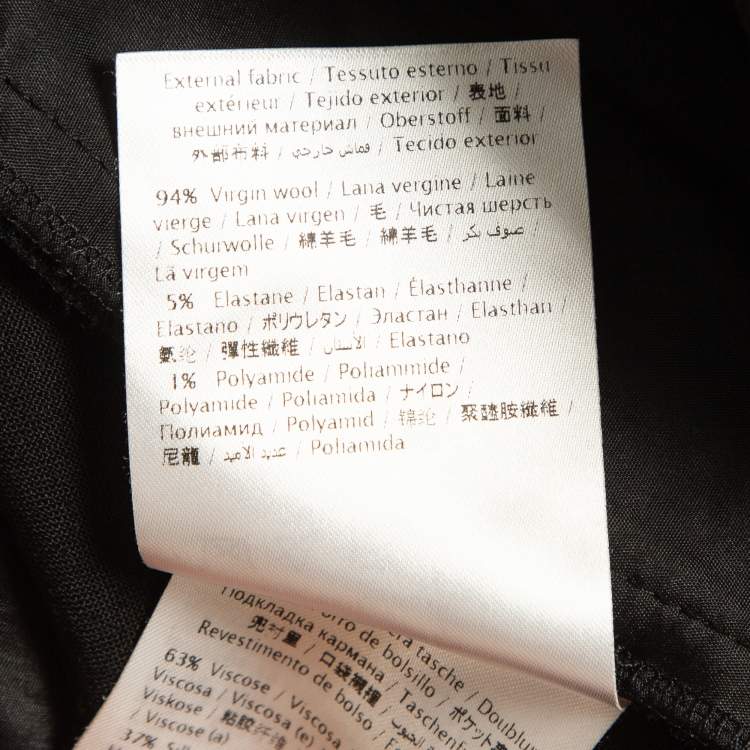 External fabric / Tessuto esterno / Tissu
extérieur / Tejido exterior / 表地 /
внешний материал / Oberstoff / 面料 /
外部布料 / قماش خارجي / Tecido exterior
94% Virgin wool / Lana vergine / Laine
vierge / Lana virgen / 毛 / Чистая шерсть
/ Schurwolle / 綿羊毛 / 綿羊毛 / صوف بكر /
Lã virgem
5% Elastane / Elastan / Élasthanne /
Elastano / ポリウレタン / Эластан / Elasthan /
氨纶 / 彈性纖維 / الاستان / Elastano
1% Polyamide / Poliammide /
Polyamide / Poliamida / ナイロン /
Полиамид / Polyamid / 锦纶 / 聚醯胺纖維 /
尼龍 / عديد الاميد / Poliamida
tasche / Doublur
Подкладка кармана / Forro de bolsillo / ポケット
/ 口袋裡襠 / Taschenf
Revestimento de bolso /
63% Viscose / Viscosa
Viscosa / Viscose (a)
Viskose / 粘胶纤维
/ Viscose (a)
37%